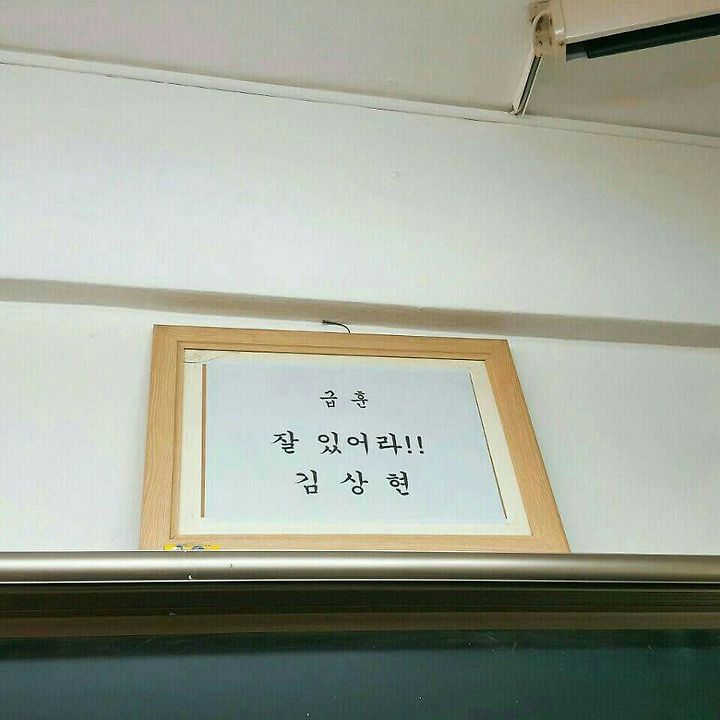 급훈
잘 있어라!!
김상현